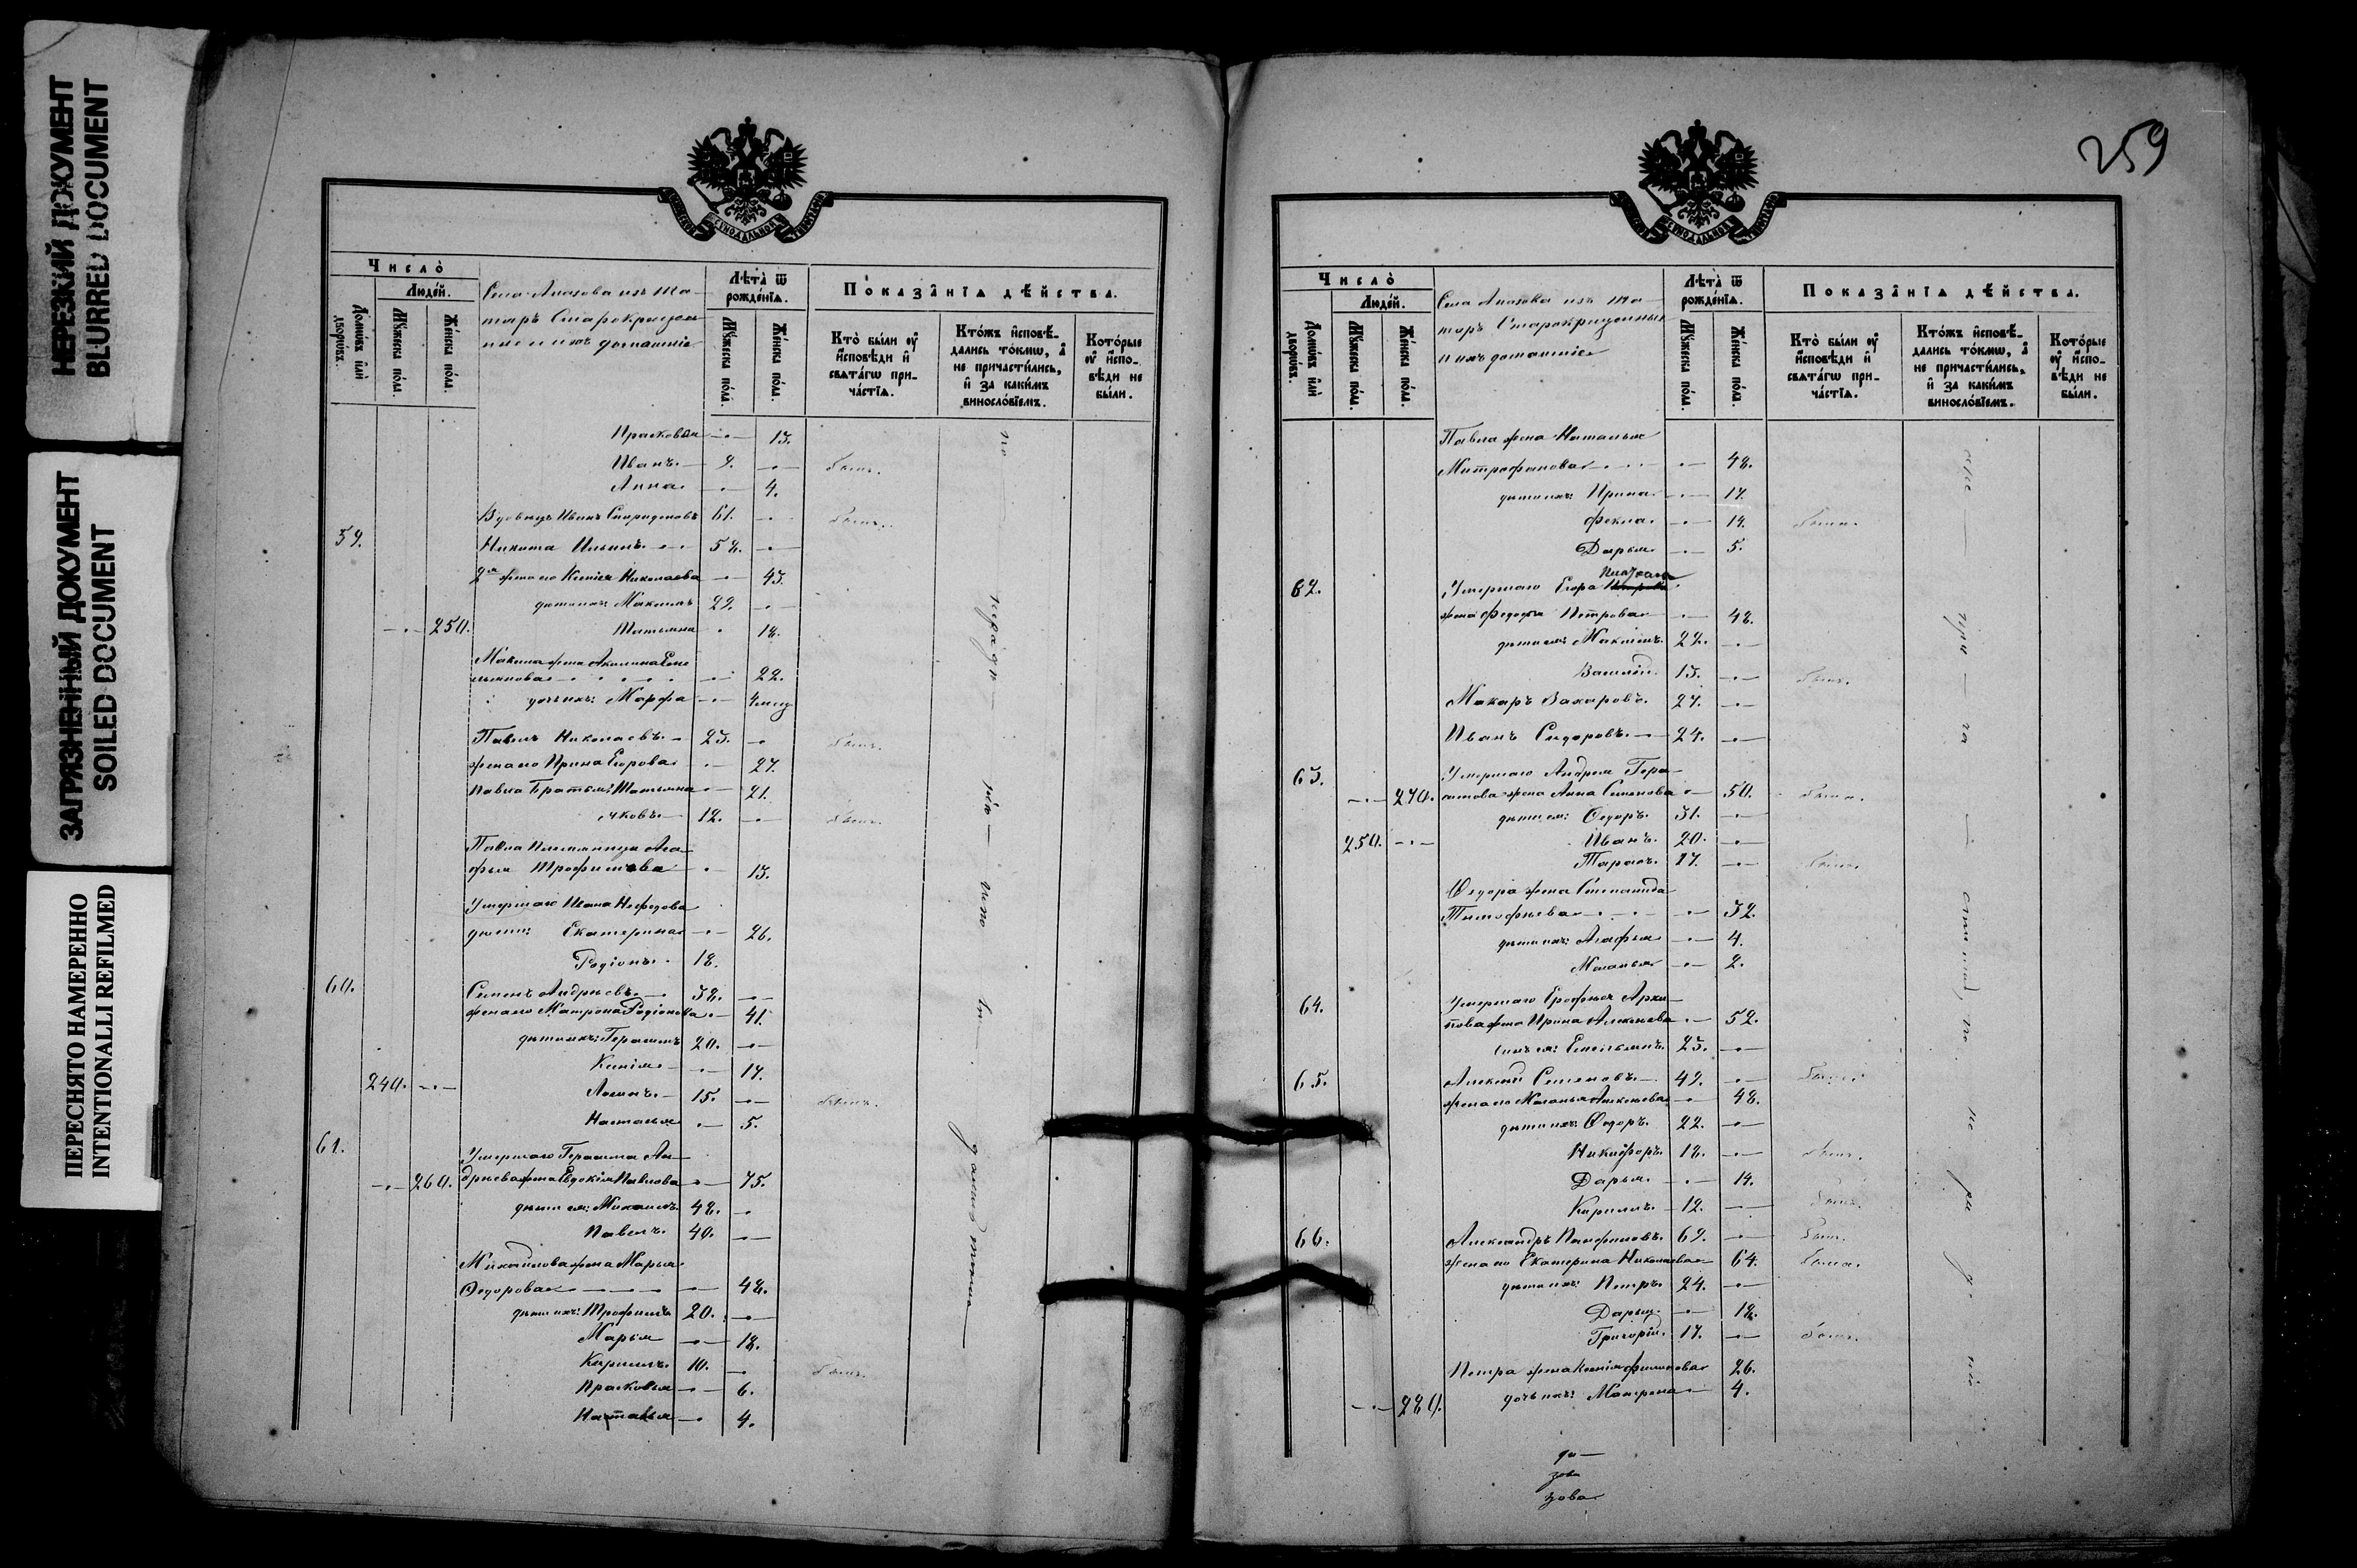 НЕРЕЗКИЙ ДОКУМЕНТ
BLURRED DOCUMENT
ЗАГРЯЗНЕННЫЙ ДОКУМЕНТ
SOILED DOCUMENT
ПЕРЕСНЯТО НАМЕРЕННО
INTENTIONALLI REFILMED
Число̀
Людей.
Домѡвъ или дворѡвъ.
Мꙋжеска пола.
Женска пола.
Села Апазова изъ та-
таръ Старокрещен
ные и ихъ домашніе
Лѣта̀ ѿ рожденїѧ.
Мꙋжеска пола.
Женска пола.
Показанїѧ дѣйства.
Кто̀ были ᲂу҆ исповѣди и свѧтагѡ причастїѧ.
Ктожъ исповѣдались токмѡ, а не причастились, и за какимъ винословїемъ.
Которые ᲂу҆ исповѣди не были.
Прасковья 13.
Иванъ. 9. былъ.
Анна. 4.
Вдовецъ Иванъ Спиридоновъ 61. былъ.
59. Никита Ильинъ. 52.
2я жена его Ксенія Николаева 43.
дѣти ихъ: Максимъ 22.
250. Татьяна 18.
Максима жена Акилина Еме
льянова 22.
дочь ихъ: Марфа 4 мѣс
Павелъ Николаевъ. 23. былъ.
жена его Ирина Егорова 27.
Павла Братья: Татьяна 21.
Яковъ. 12. былъ.
Павла Племянница Ага-
фья Трофимова 13.
Умершаго Ивана Нефедова
дѣти: Екатерина 26.
Родіонъ. 18.
60. Семенъ Андреевъ. 38.
жена его Матрона Родіонова 41.
дѣти ихъ: Герасимъ 20.
Ксенія 17.
240. Логинъ. 15. былъ.
Наталья 5.
61. Умершаго Герасима Ан-
260. дреева жена Евдокія Павлова 75.
дѣти ея: Михаилъ 48.
Павелъ. 40.
Михаилова жена Марья
Ѳедорова 48.
дѣти ихъ: Трофимъ 20.
Марья 18.
Кирилъ. 10. былъ.
Прасковья 6.
Наталья 4.
259
Число̀
Людей.
Домѡвъ или дворѡвъ.
Мꙋжеска пола.
Женска пола.
Села Апазова изъ та-
таръ Старокрещенные
и ихъ домашніе
Лѣта̀ ѿ рожденїѧ.
Мꙋжеска пола.
Женска пола.
Показанїѧ дѣйства.
Кто̀ были ᲂу҆ исповѣди и свѧтагѡ причастїѧ.
Ктожъ исповѣдались токмѡ, а не причастились, и за какимъ винословїемъ.
Которые ᲂу҆ исповѣди не были.
Павла жена Наталья
Митрофанова 48.
дѣти ихъ: Ирина. 17.
Фекла. 14. была.
Дарья. 5.
62. Умершаго Егора
жена Федосья Петрова 48.
дѣти ея: Максимъ. 22.
Василій. 13. былъ.
Макаръ Захаровъ. 27.
Иванъ Сидоровъ. 24.
63. Умершаго Андрея Гера-
270. симова жена Анна Семенова 50. была.
дѣти ея: Ѳедоръ. 31.
250. Иванъ. 20.
Тарасъ. 17. былъ.
Ѳедора жена Степанида
Тимофеева 32.
дѣти ихъ: Агафья 4.
Маланья 2.
64. Умершаго Ерофея Архи-
пова жена Ирина Алексеева 52.
сынъ ея: Емельянъ. 23.
65. Алексей Семеновъ. 49. былъ.
жена его Маланья Алексеева 48.
дѣти ихъ: Ѳедоръ. 22.
Никифоръ. 18. былъ.
Дарья. 14.
Кирилъ. 12. былъ.
66. Александръ Панфиловъ. 69. былъ.
жена его Екатерина Николаева 64. была.
дѣти ихъ: Петръ. 24.
Дарья. 18.
Григорій. 17. былъ.
Петра жена Ксенія Филипова 26.
280. дочь ихъ: Матрона 4.